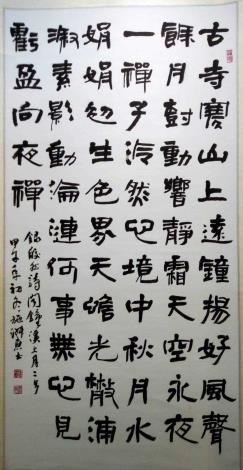 古寺寒山上遠鐘揚好風聲
餘月尌動響靜霜天空永夜
一禪子泠然心境中秋月水
娟娟初生色界天蟾光散浦
漵素影動淪漣何事無心見
虧盈向夜禪
錄皎然詩聞鐘溪上月二首
甲午年初冬